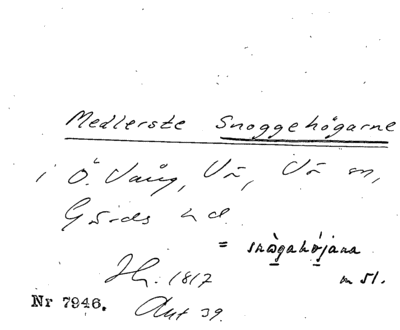 Medlerste Snoggehögarne
i Ö. Vång, Vä, Vä sn,
Gärds hd
= snògahöjana
Jh. 1817 m 51.
Nr 7946. Akt 39.